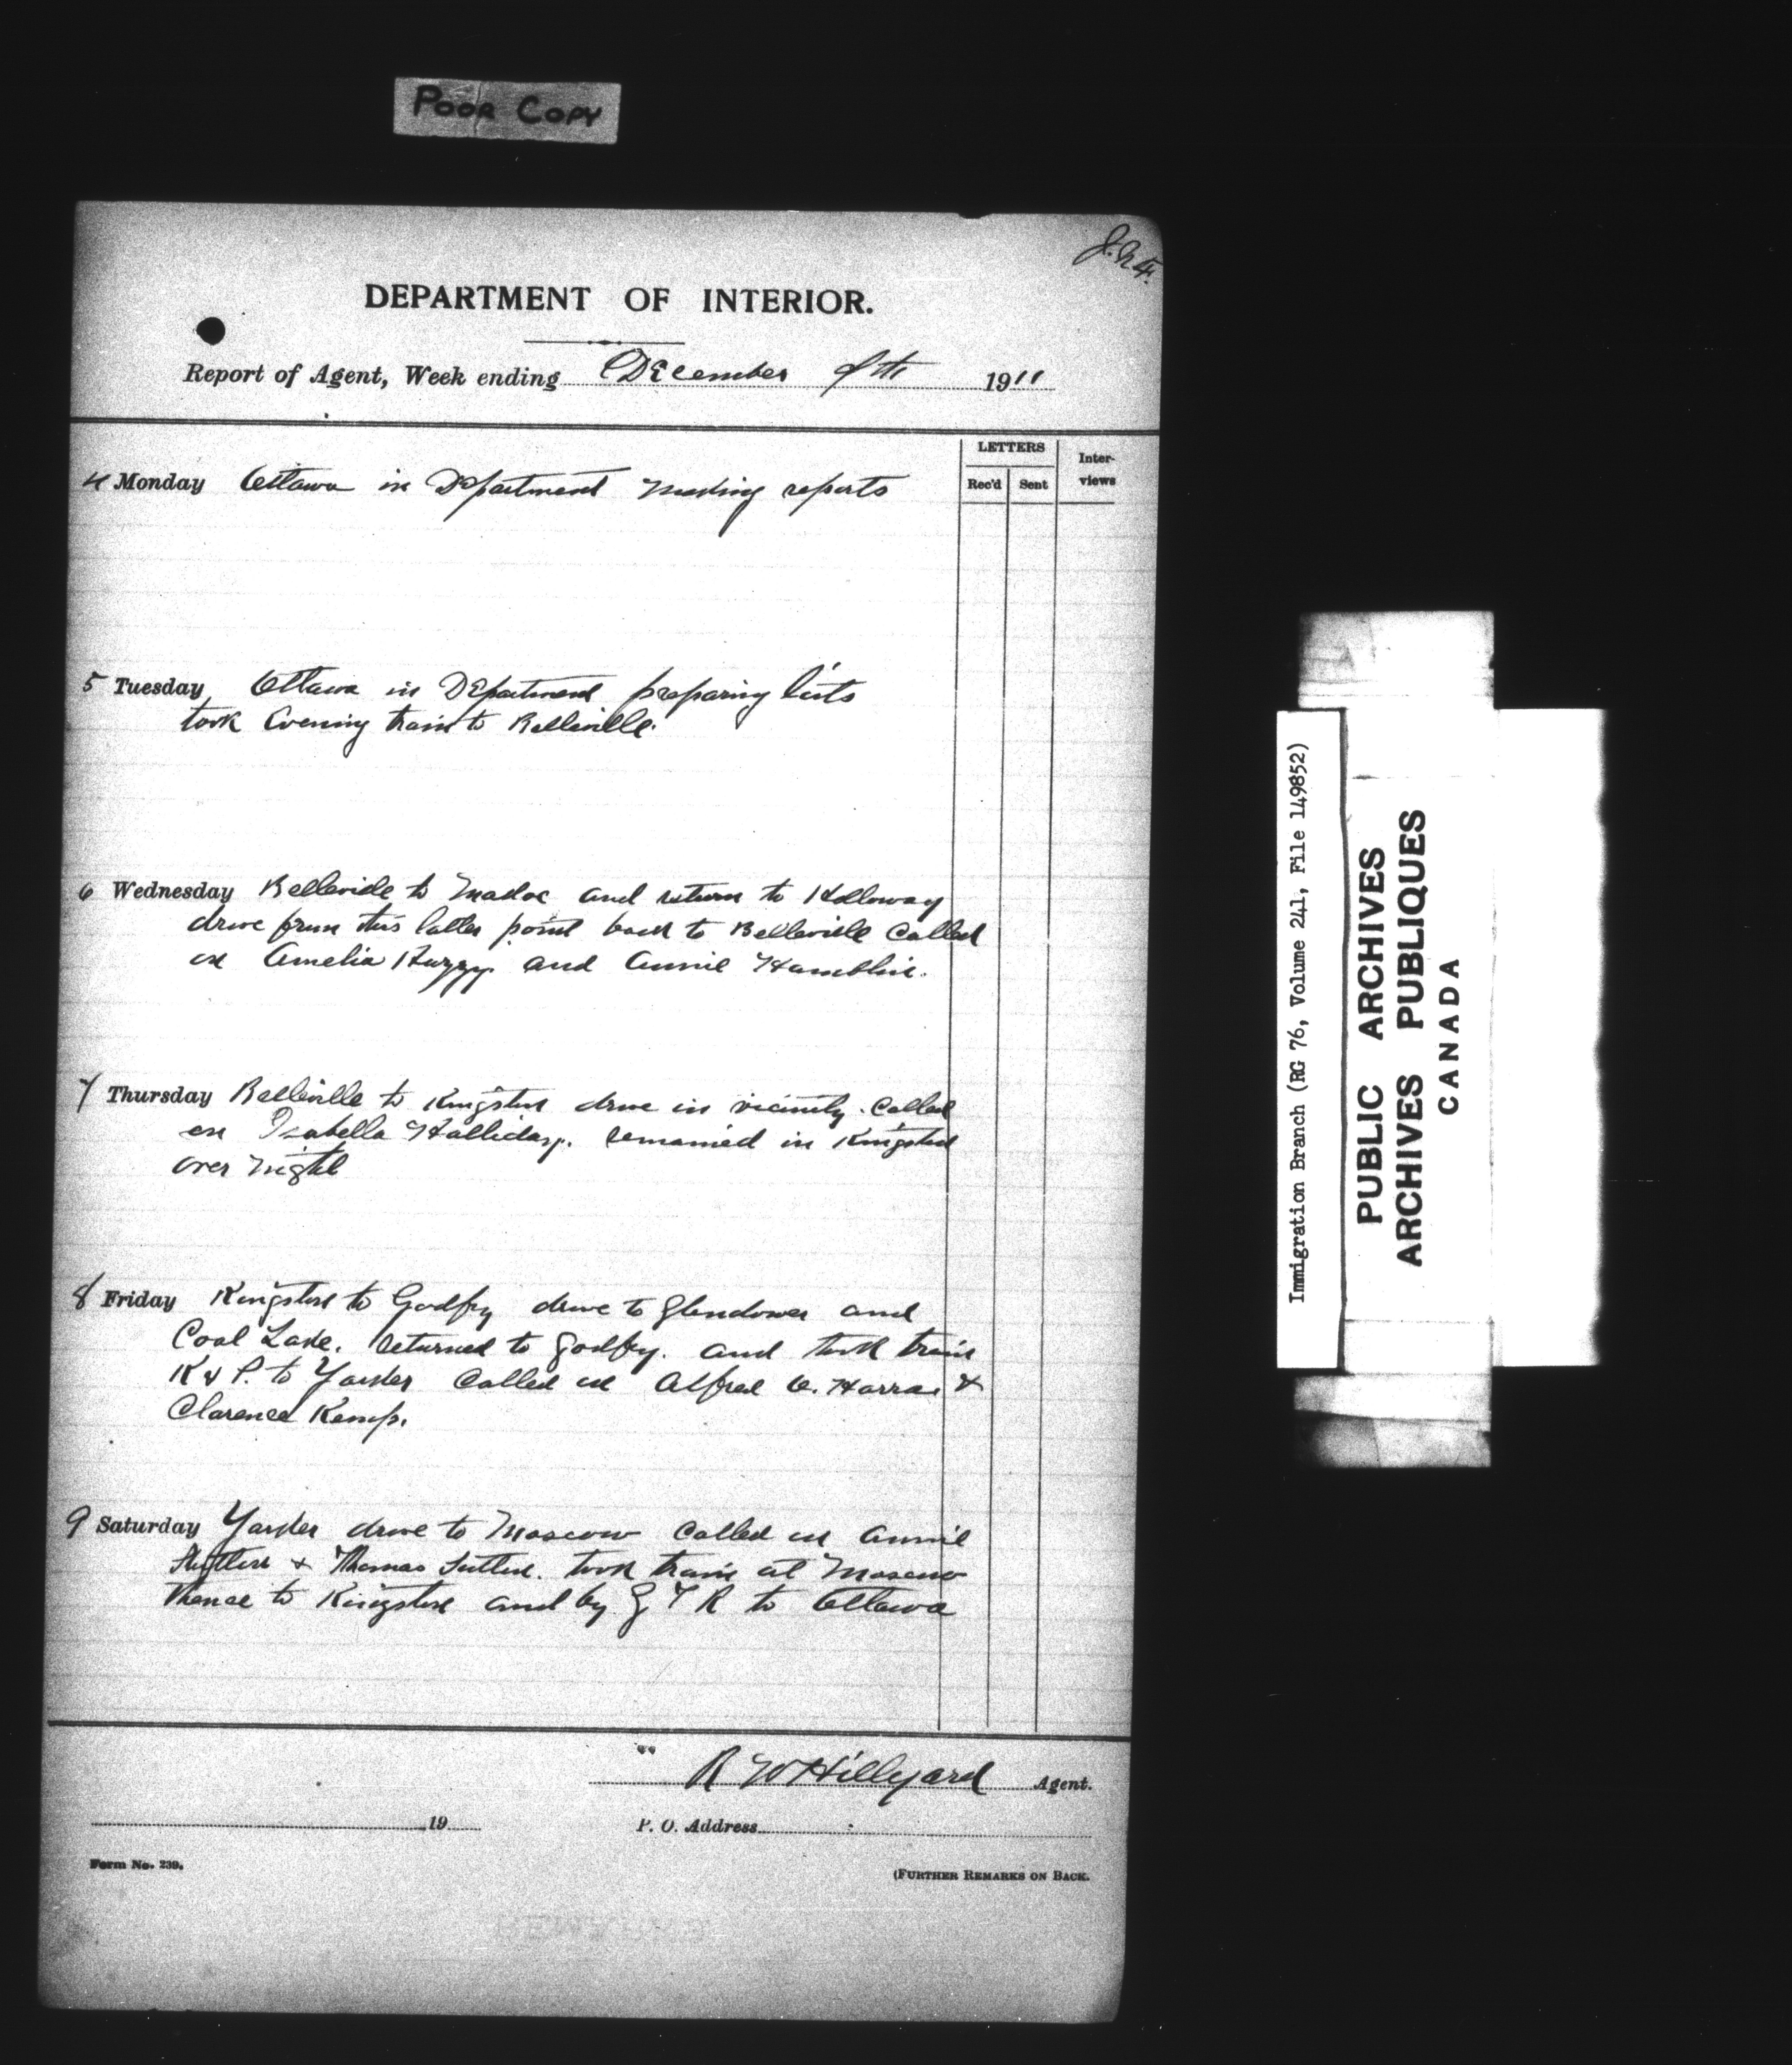 POOR COPY
DEPARTMENT OF INTERIOR.
Report of Agent, Week ending December 9th 1911
LETTERS
Rec'd Sent
Inter-
views
4 Monday Ottawa in Department making reports
5 Tuesday Ottawa in Department preparing lists
took Evening train to Belleville.
6 Wednesday Belleville to Madoc and return to Holloway
drive from this latter point back to Belleville Called
on Amelia and Annie Hamblin.
7 Thursday Belleville to Kingston drive in vicinity. Called
on Isabella Halliday. remained in Kingston
over night
8 Friday Kingston to Godfry drive to Glendower and
Coal Lake. returned to Godfry. and took train
K & P. to Yarker Called on Alfred &
Clarence Kemp.
9 Saturday Yarker drive to Moscow Called on Annie
& Thomas Sutton. took train at Moscow
thence to Kingston and by G T R to Ottawa
R W Hillyard Agent.
19
P. O. Address
Form No. 239.
(FURTHER REMARKS ON BACK.
Immigration Branch (RG 76, Volume 241, File 149852)
PUBLIC ARCHIVES
ARCHIVES PUBLIQUES
CANADA